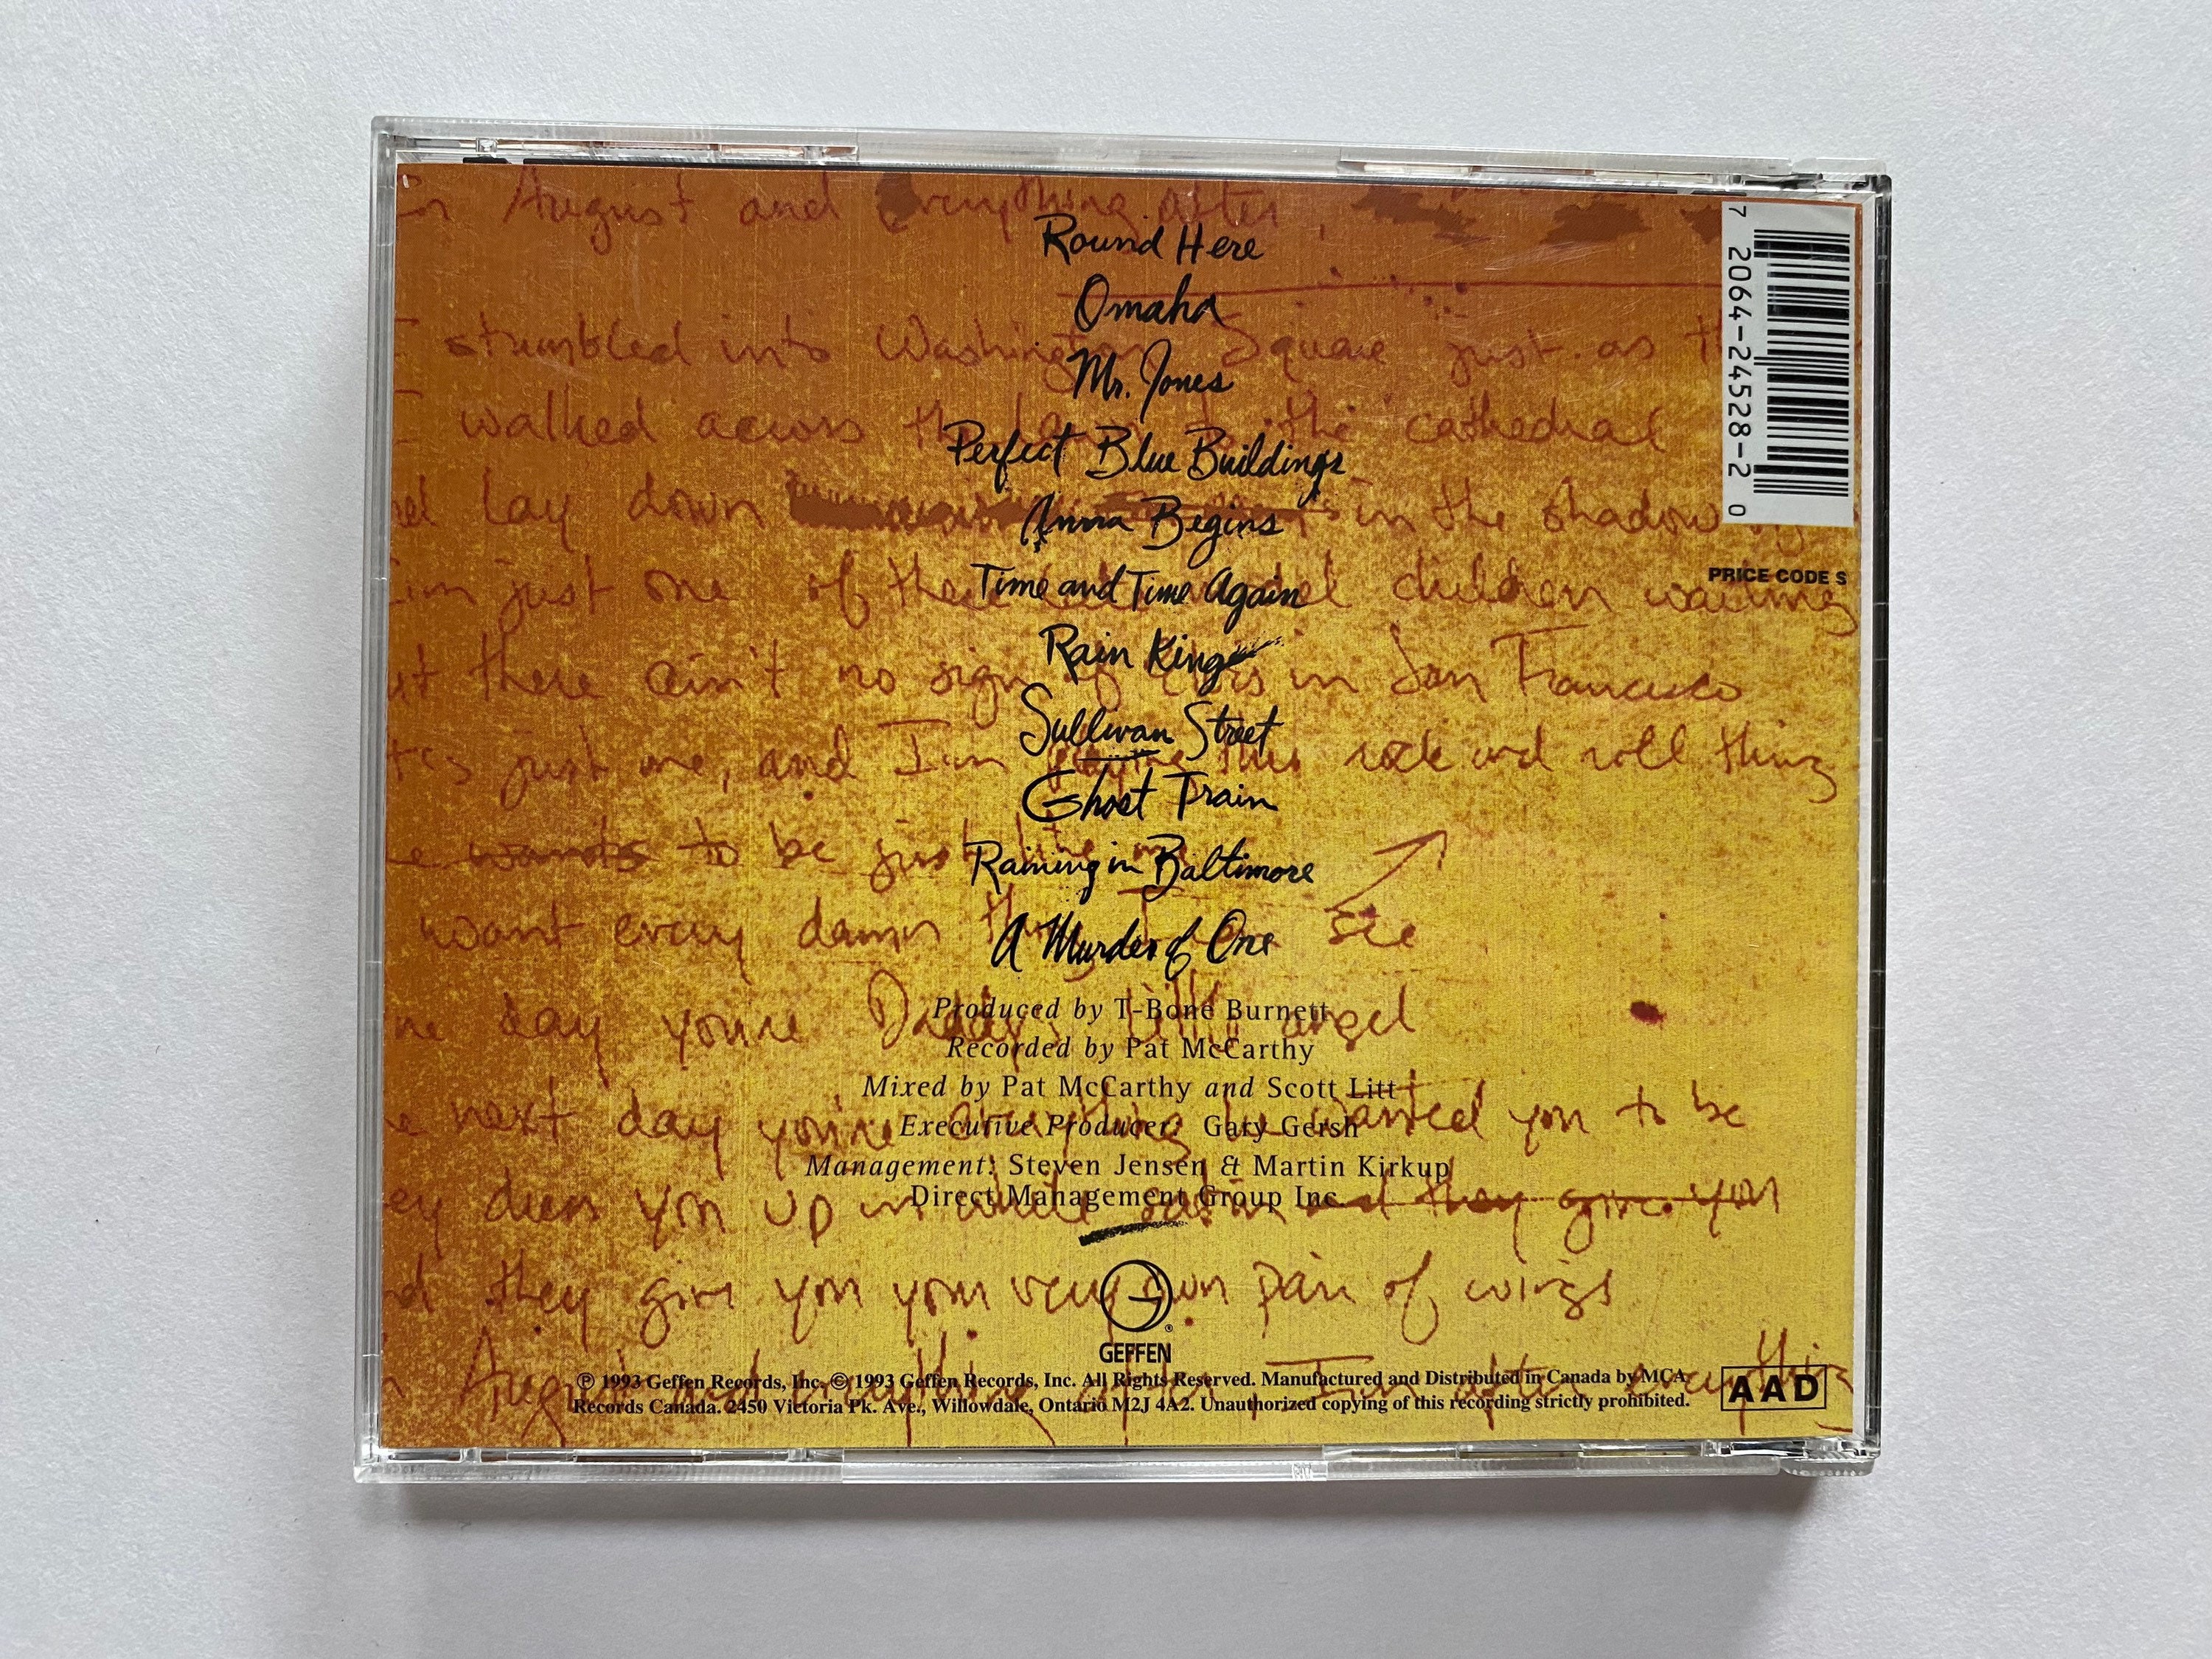 in August and Everything after,
Round Here
Omaha
I stumbled into Washington Square just as
Mr. Jones
I walked across the the cathedral
Perfect Blue Buildings
lay down in the shadow
Anna Begins
Time and Time Again
i'm just one of these children waiting
Rain King
there ain't no sign of in San Francisco
Sullivan Street
just me, and I'm this rock and roll thing
Ghost Train
wants to be just like me
Raining in Baltimore
want every damn thing I see
A Murder of One
day you're Daddy's little angel
Produced by T-Bone Burnett
Recorded by Pat McCarthy
Mixed by Pat McCarthy and Scott Litt
next day you're everything he wanted you to be
Executive Producer: Gary Gersh
Management: Steven Jensen & Martin Kirkup
Direct Management Group Inc.
dress you up in white satin and they give you
they give you your very own pair of wings
GEFFEN
August and everything after, I'm after everything
℗ 1993 Geffen Records, Inc. © 1993 Geffen Records, Inc. All Rights Reserved. Manufactured and Distributed in Canada by MCA
Records Canada. 2450 Victoria Pk. Ave., Willowdale, Ontario M2J 4A2. Unauthorized copying of this recording strictly prohibited.
AAD
7 2064-24528-2 0
PRICE CODE S